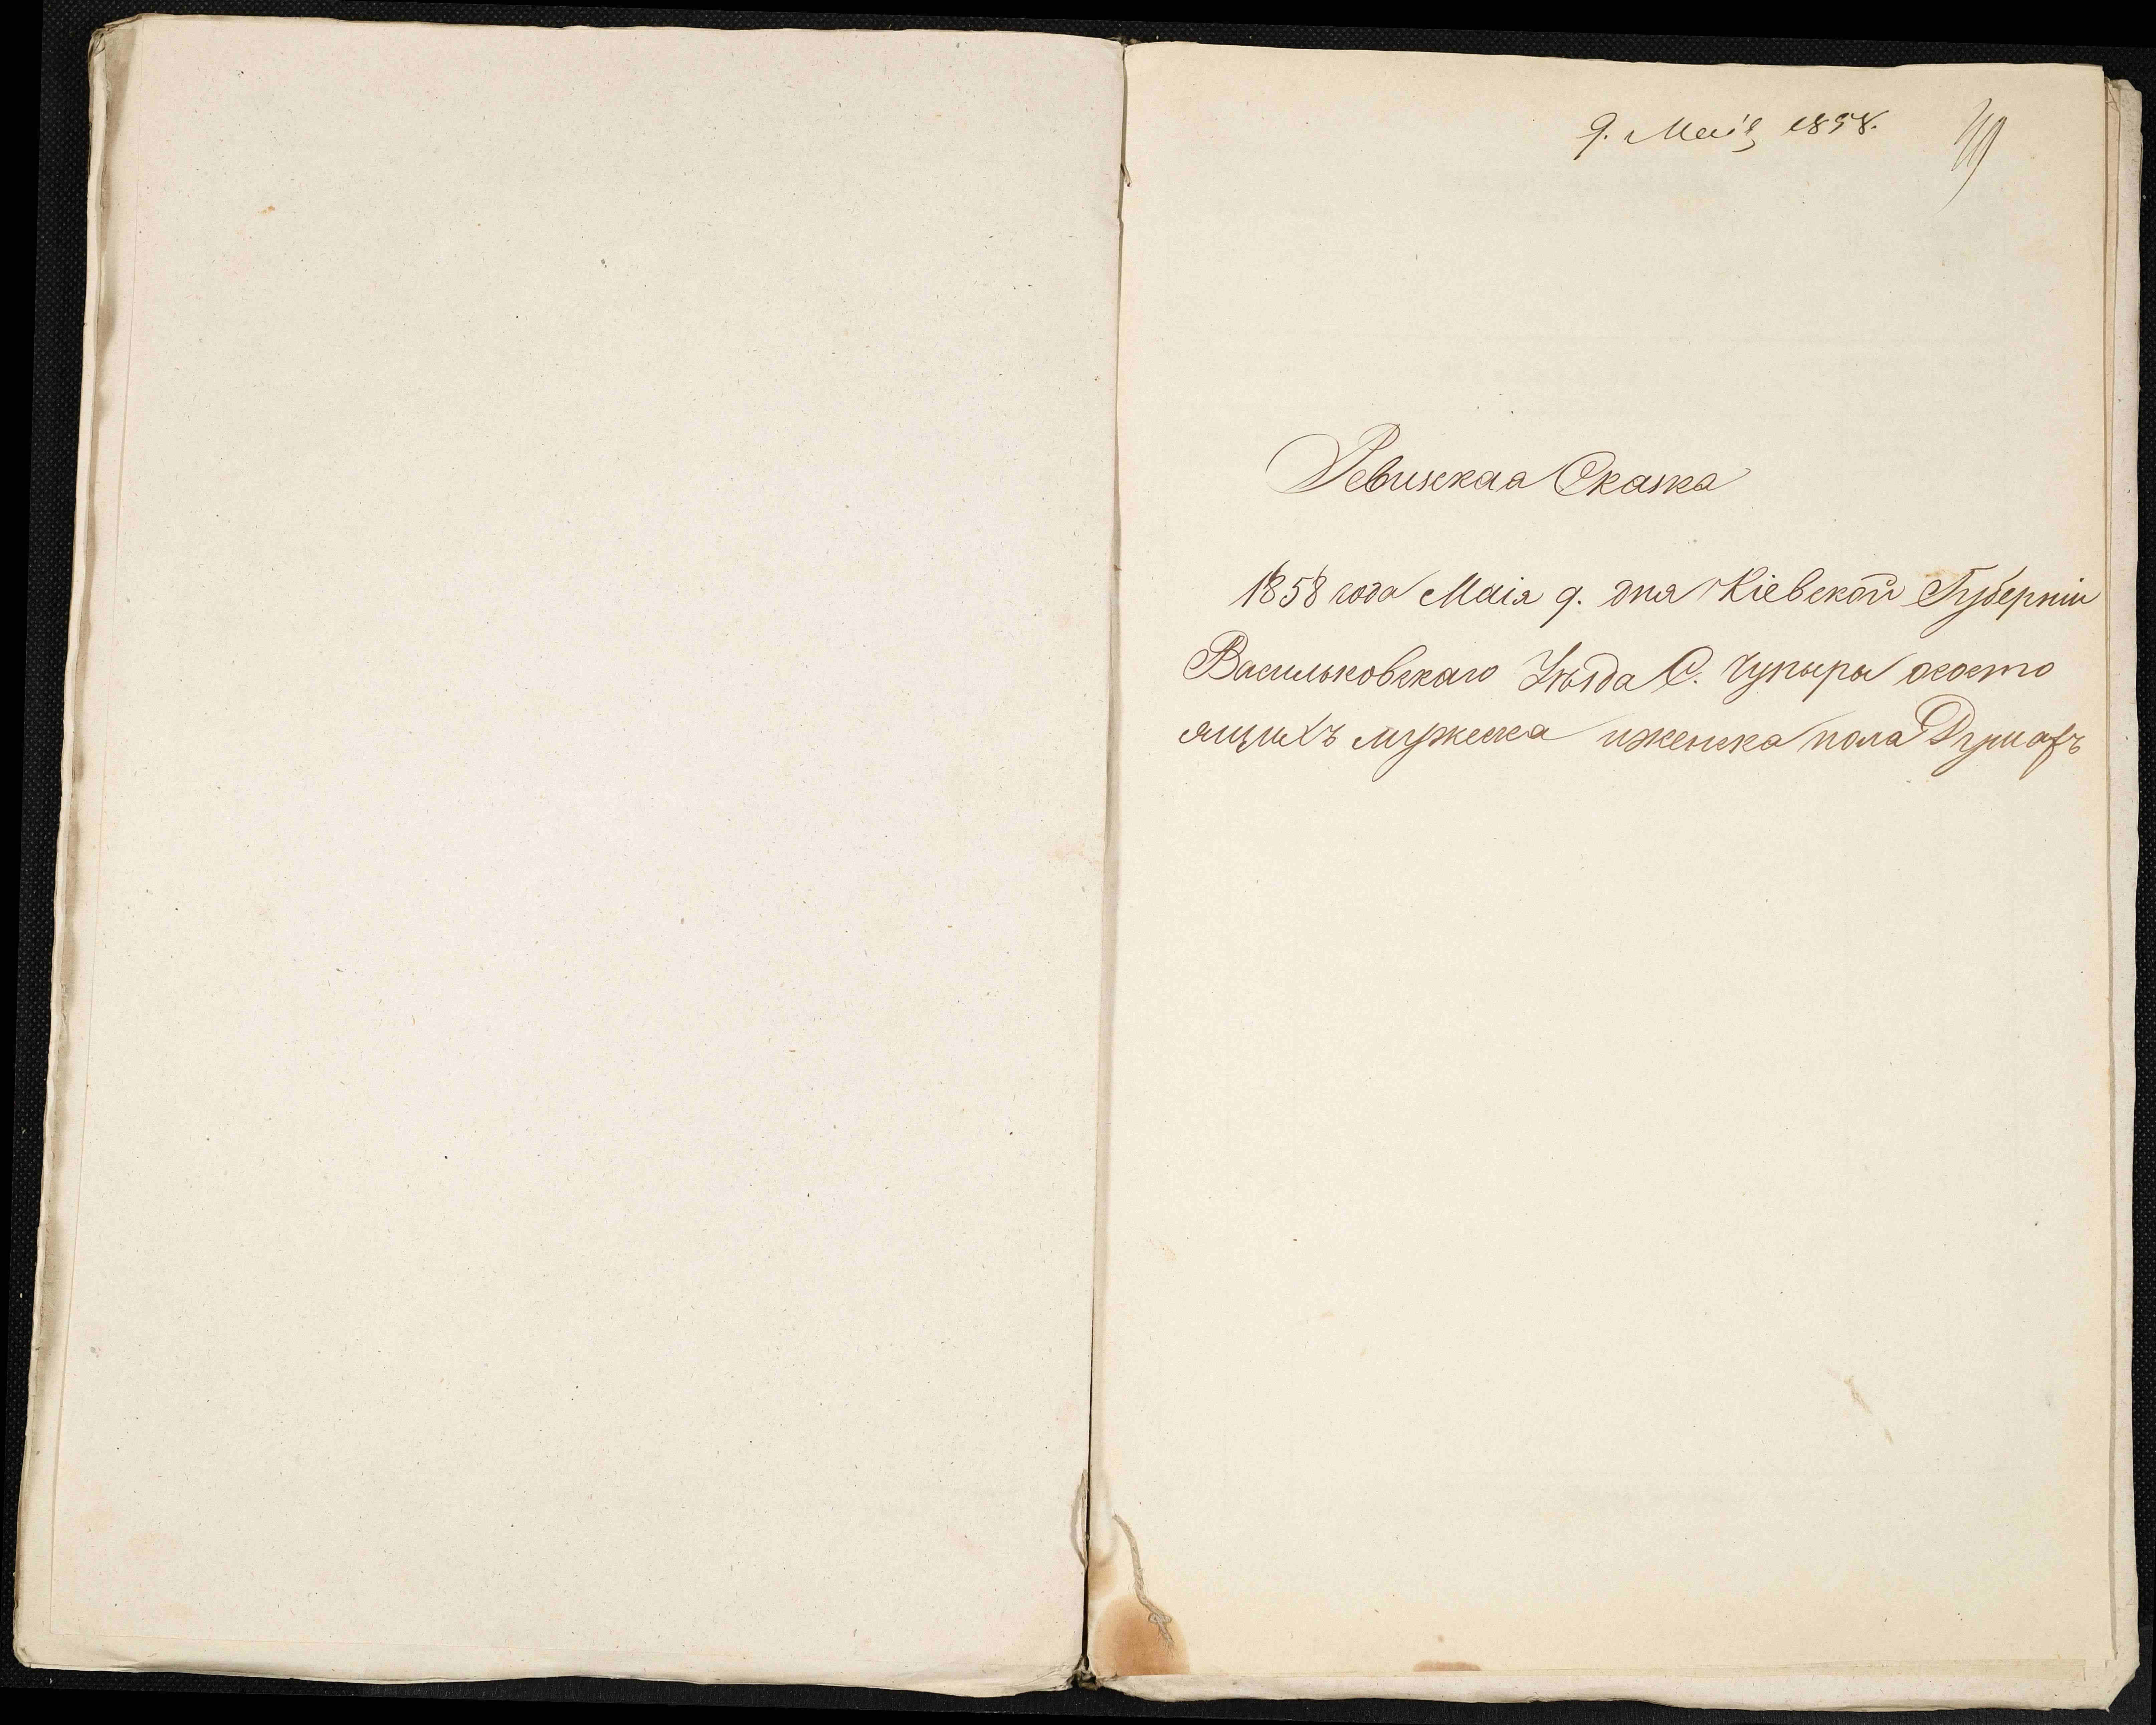 9. Маія 1858.
Ревизская Сказка
1858 года Маія 9. дня Кіевской Губерніи
Васильковскаго Уѣзда С. Чупыры ососто
ящихъ мужеска иженска пола Душахъ